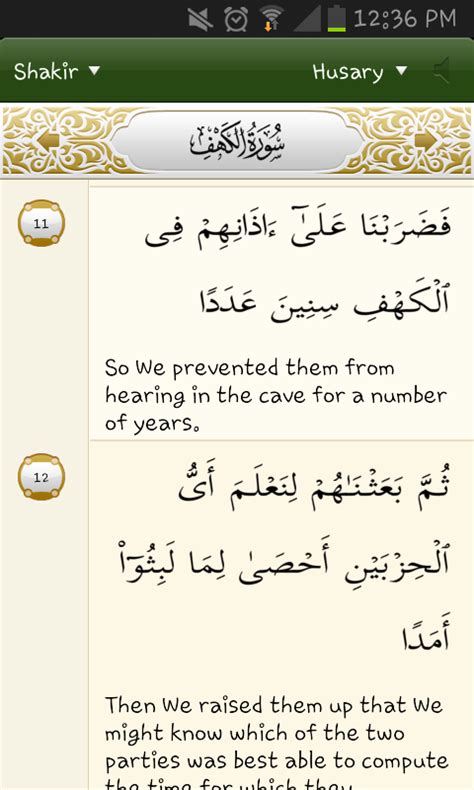 12:36 PM
Shakir
Husary
سُورَةُ الكَهْفِ
11
فَضَرَبْنَا عَلَىٰٓ ءَاذَانِهِمْ فِى
ٱلْكَهْفِ سِنِينَ عَدَدًا
So We prevented them from
hearing in the cave for a number
of years.
12
ثُمَّ بَعَثْنَـٰهُمْ لِنَعْلَمَ أَىُّ
ٱلْحِزْبَيْنِ أَحْصَىٰ لِمَا لَبِثُوٓا۟
أَمَدًا
Then We raised them up that We
might know which of the two
parties was best able to compute
the time for which they